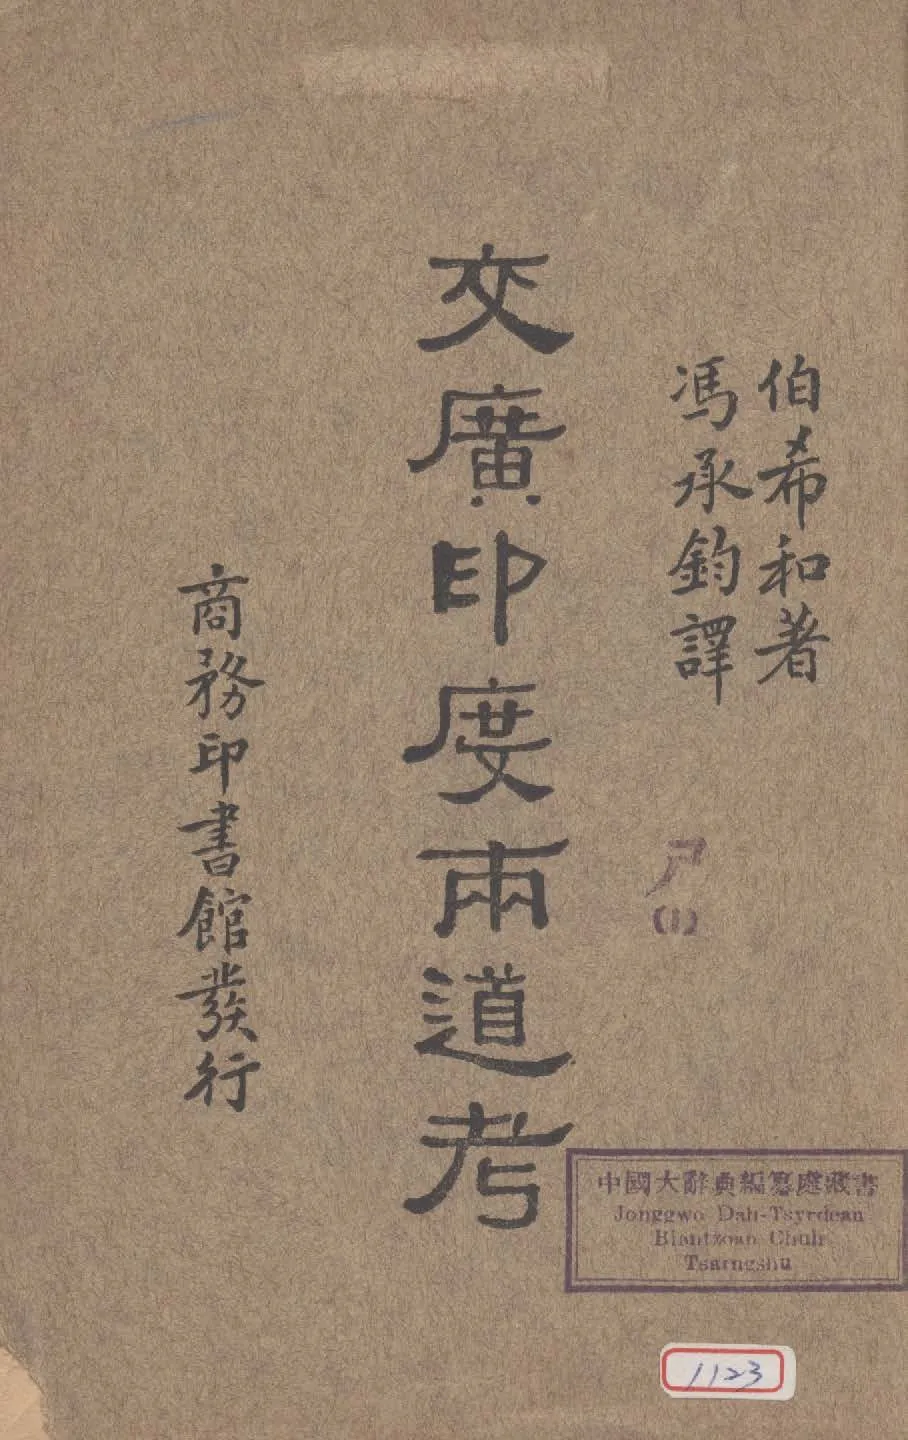 伯希和著
馮承鈞譯
交廣印度兩道考
商務印書館發行
ㄕ
(1)
中國大辭典編纂處藏書
Jonggwo Dah-Tsyrdean
Biantzoan Chuh
Tsarngshu
1123